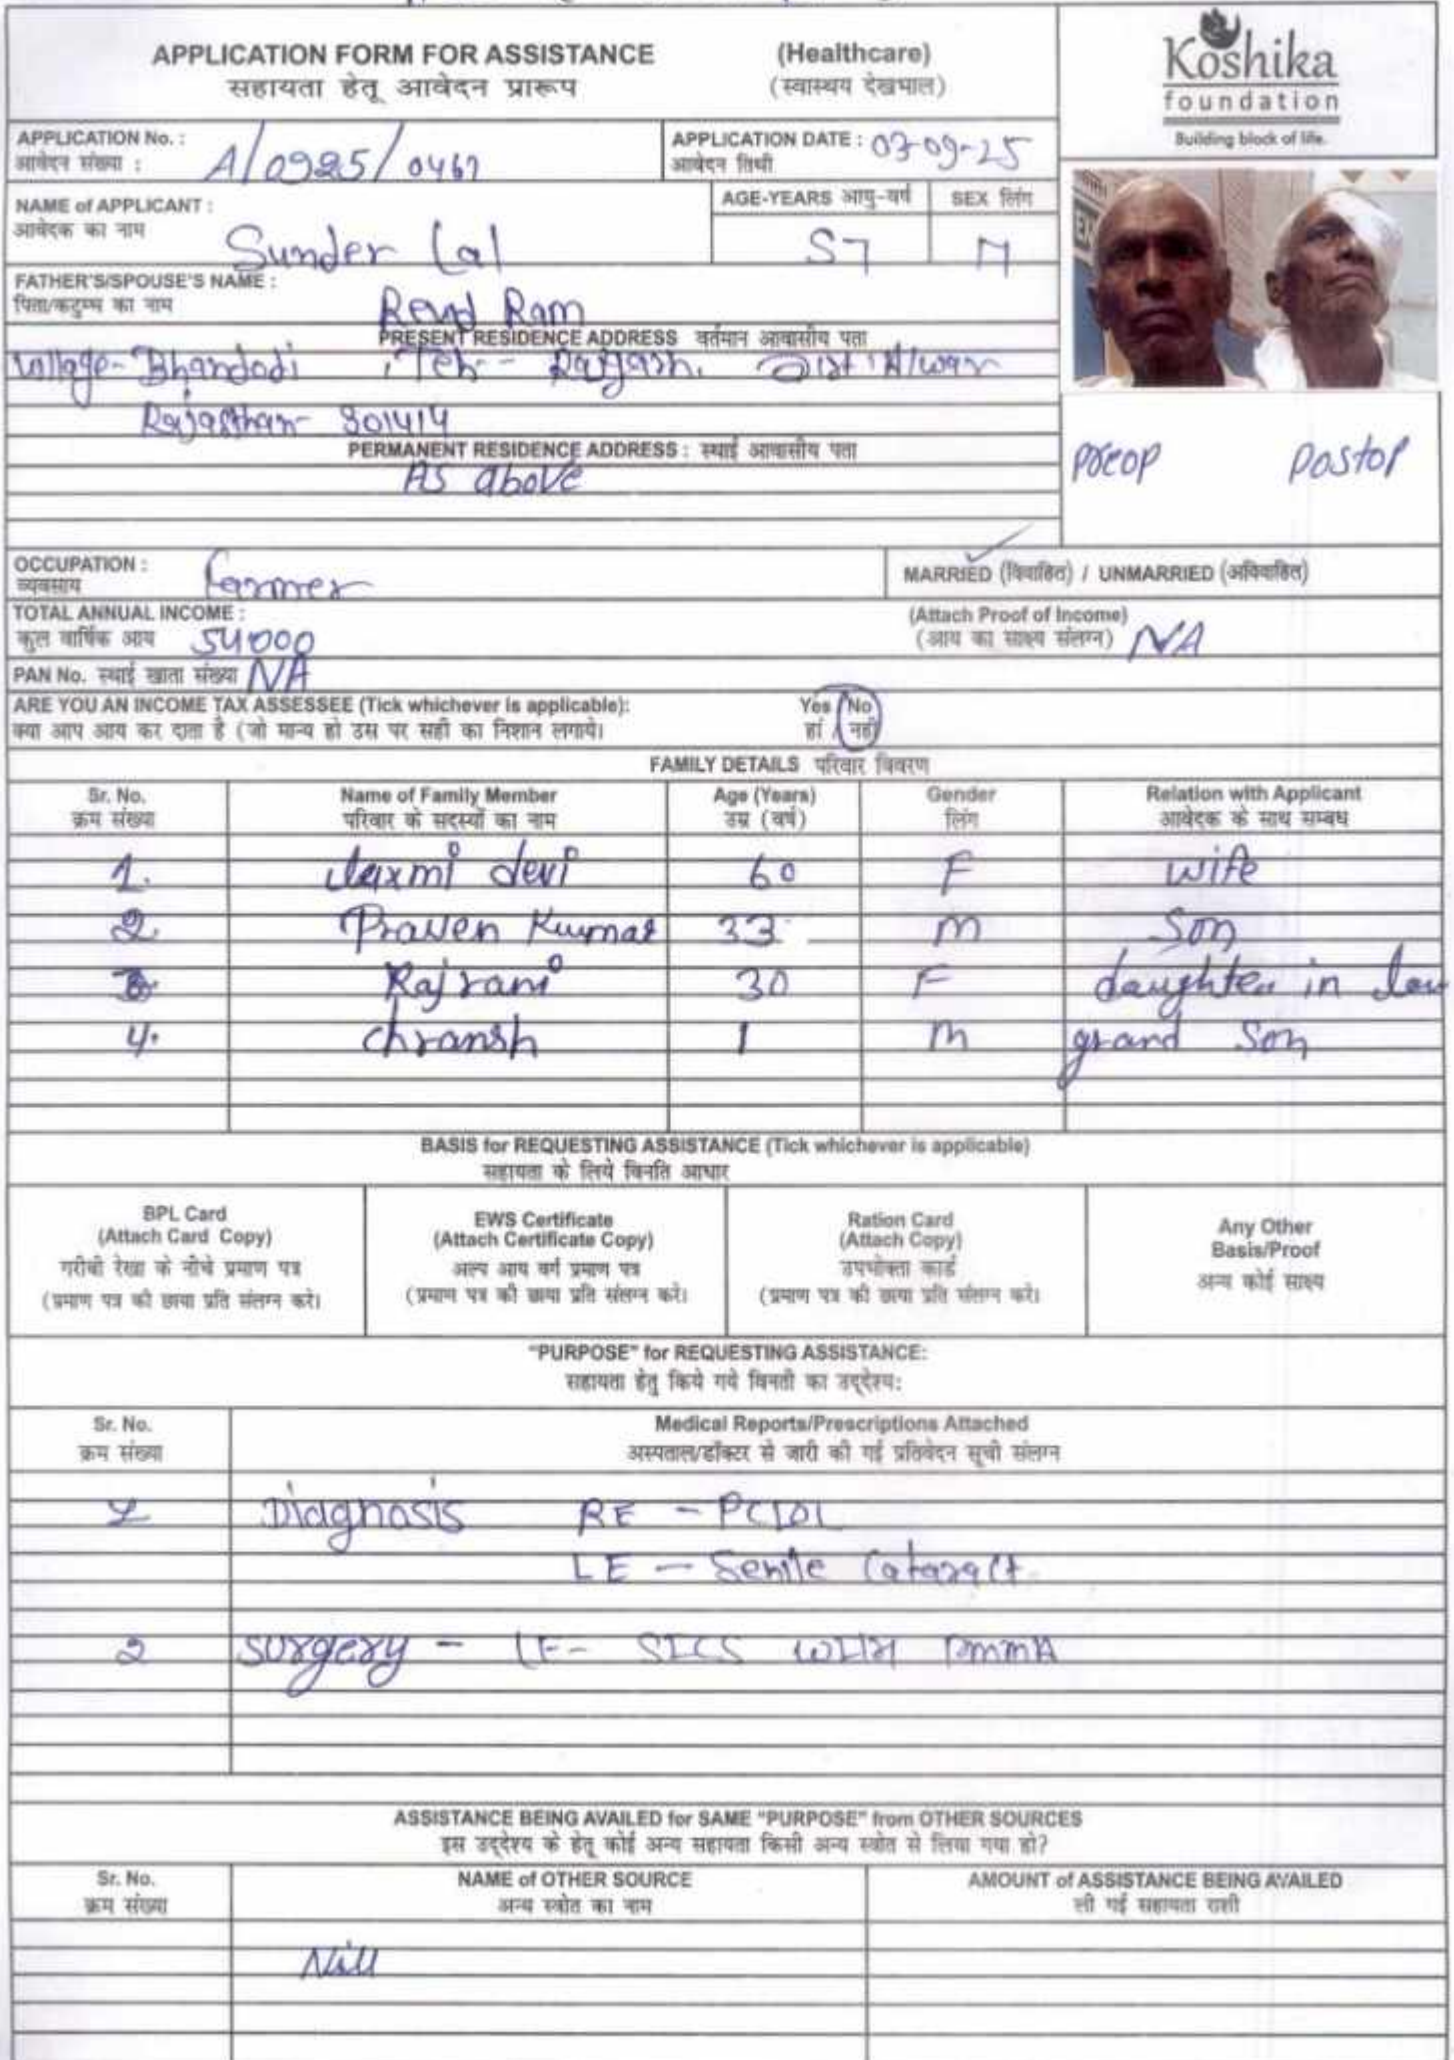 APPLICATION FORM FOR ASSISTANCE (Healthcare)
सहायता हेतू आवेदन प्रारूप (स्वास्थय देखभाल)
Koshika
foundation
Building block of life.
APPLICATION No. : A/0925/0467
आवेदन संख्या :
APPLICATION DATE : 03-09-25
आवेदन तिथी
NAME of APPLICANT : Sunder Lal
आवेदक का नाम
AGE-YEARS आयु-वर्ष 57
SEX लिंग M
FATHER'S/SPOUSE'S NAME :
पिता/कटुम्ब का नाम Ram
PRESENT RESIDENCE ADDRESS वर्तमान आवासीय पता
Village- Bhandodi , Teh- Rajgarh, Dist Alwar
Rajasthan- 301414
PERMANENT RESIDENCE ADDRESS : स्थाई आवासीय पता
As above
preop postop
OCCUPATION : Farmer
व्यवसाय
MARRIED (विवाहित) / UNMARRIED (अविवाहित)
TOTAL ANNUAL INCOME :
कुल वार्षिक आय 54000
(Attach Proof of Income)
(आय का साक्ष्य संलग्न) NA
PAN No. स्थाई खाता संख्या NA
ARE YOU AN INCOME TAX ASSESSEE (Tick whichever is applicable): Yes / No
क्या आप आय कर दाता है (जो मान्य हो उस पर सही का निशान लगाये। हां / नहीं
FAMILY DETAILS परिवार विवरण
Sr. No. Name of Family Member Age (Years) Gender Relation with Applicant
क्रम संख्या परिवार के सदस्यों का नाम उम्र (वर्ष) लिंग आवेदक के साथ सम्बंध
1. Laxmi devi 60 F wife
2 Praven Kumar 33 M Son
3 Rajrani 30 F daughter in law
4. chransh 1 M grand Son
BASIS for REQUESTING ASSISTANCE (Tick whichever is applicable)
सहायता के लिये विनति आधार
BPL Card
(Attach Card Copy)
गरीबी रेखा के नीचे प्रमाण पत्र
(प्रमाण पत्र की छाया प्रति संलग्न करे।
EWS Certificate
(Attach Certificate Copy)
अल्प आय वर्ग प्रमाण पत्र
(प्रमाण पत्र की छाया प्रति संलग्न करे।
Ration Card
(Attach Copy)
उपभोक्ता कार्ड
(प्रमाण पत्र की छाया प्रति संलग्न करे।
Any Other
Basis/Proof
अन्य कोई साक्ष्य
"PURPOSE" for REQUESTING ASSISTANCE:
सहायता हेतु किये गये विनती का उद्देश्य:
Sr. No. Medical Reports/Prescriptions Attached
क्रम संख्या अस्पताल/डॉक्टर से जारी की गई प्रतिवेदन सूची संलग्न
1 Diagnosis RE - PCIOL
LE - Senile Cataract
2 Surgery - LE- SICS WITH PMMA
ASSISTANCE BEING AVAILED for SAME "PURPOSE" from OTHER SOURCES
इस उद्देश्य के हेतू कोई अन्य सहायता किसी अन्य स्त्रोत से लिया गया हो?
Sr. No. NAME of OTHER SOURCE AMOUNT of ASSISTANCE BEING AVAILED
क्रम संख्या अन्य स्त्रोत का नाम ली गई सहायता राशी
Nill